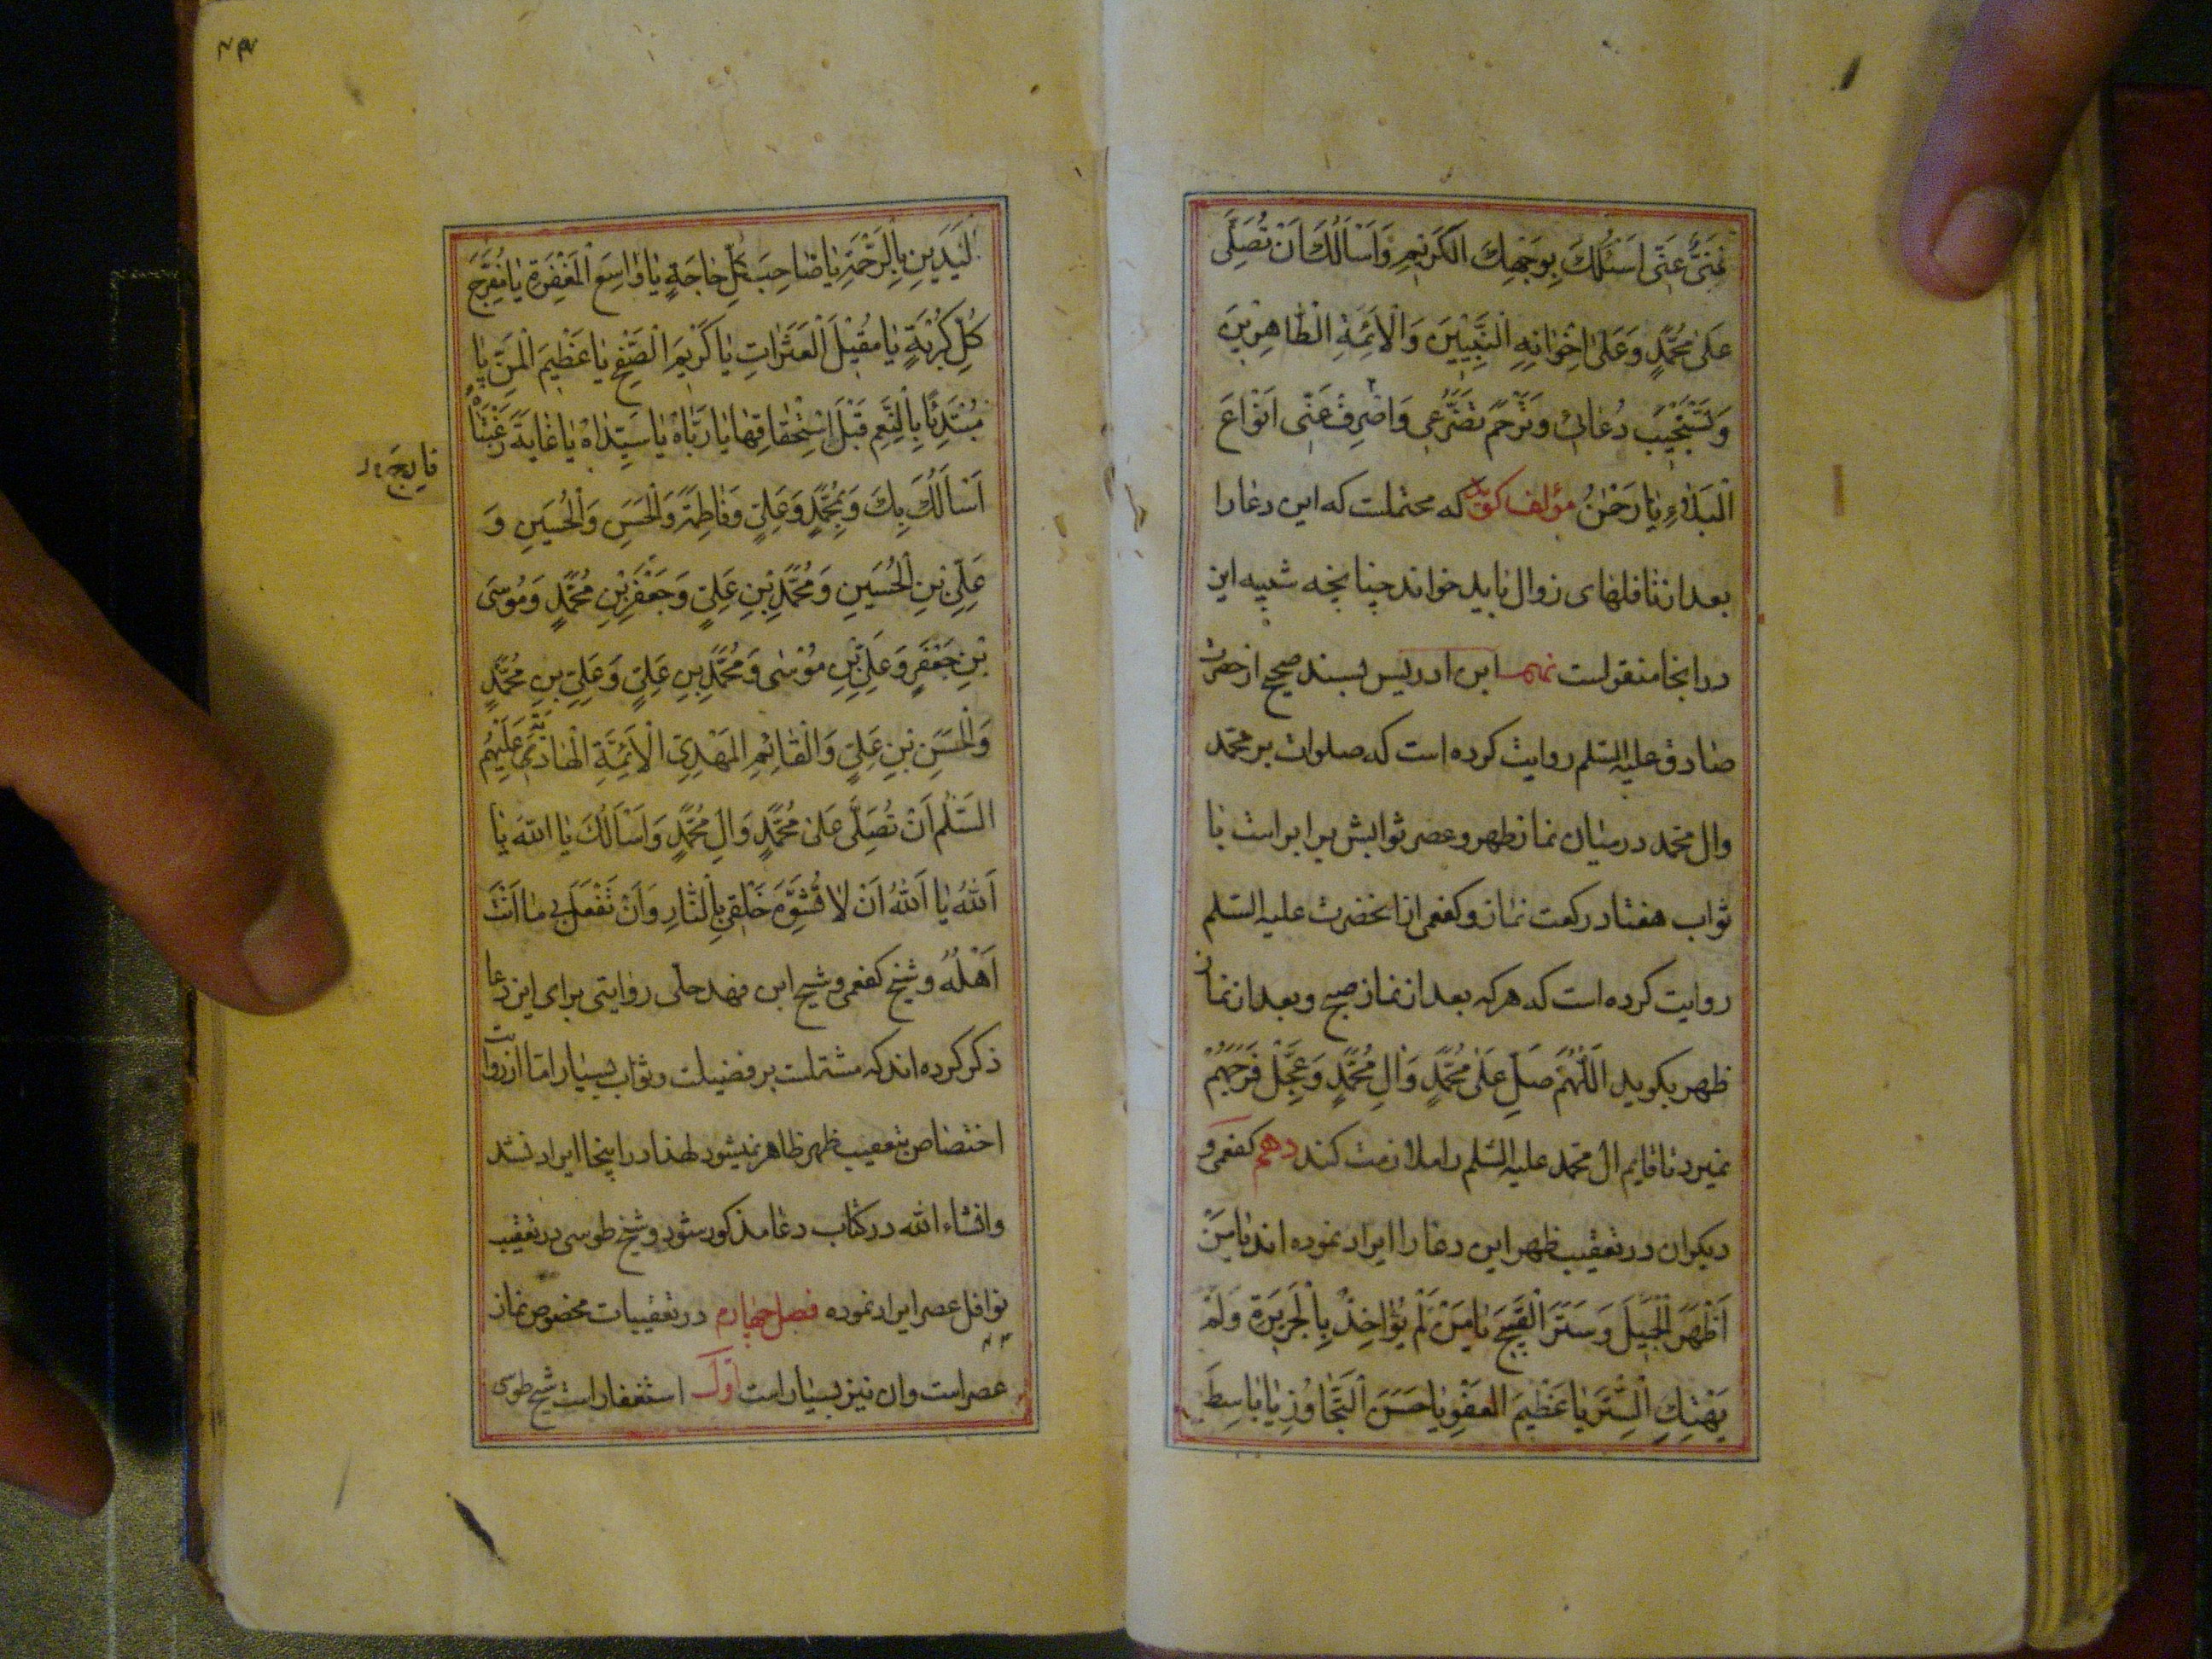 عَنِّی اَسْئَلُكَ بِوَجْهِكَ الْكَرٖیمِ وَاَسْاَلُكَ اَنْ تُصَلِّیَ
عَلیٰ مُحَمَّدٍ وَعَلیٰ اِخْوٰانِهِ النَّبِیّٖینَ وَالْاَئِمَّةِ الطّٰاهِرٖینَ
وَتَسْتَجٖیبَ دُعٰائٖی وَتَرْحَمَ تَضَرُّعٖی وَاصْرِفْ عَنّٖی اَنْوٰاعَ
الْبَلٰاءِ یٰا رَحْمٰنُ مؤلف کوید که محتملست که این دعا را
بعد از نافلهای زوال باید خواند چنانچه شبیه این
در انجا منقولست نهم ابن ادریس بسند صحیح از حضرت
صادق علیه السّلم روایت کرده است که صلوات بر محمّد
وال محمّد در میان نماز ظهر و عصر ثوابش برابر است با
ثواب هفتاد رکعت نماز و کفعمی از انحضرت علیه السّلم
روایت کرده است که هرکه بعد از نماز صبح و بعد از نماز
ظهر بکوید اَللّٰهُمَّ صَلِّ عَلیٰ مُحَمَّدٍ وَاٰلِ مُحَمَّدٍ وَعَجِّلْ فَرَجَهُمْ
نمیرد تا قایم ال محمّد علیه السّلم را ملازمت کند دهم کفعمی و
دیکران در تعقیب ظهر این دعا را ایراد نموده اند یٰا مَنْ
اَظْهَرَ الْجَمٖیلَ وَسَتَرَ الْقَبٖیحَ یٰا مَنْ لَمْ یُؤٰاخِذْ بِالْجَرٖیرَةِ وَلَمْ
یَهْتِكِ السِّتْرَ یٰا عَظٖیمَ الْعَفْوِ یٰا حَسَنَ التَّجٰاوُزِ یٰا بٰاسِطَ
الْیَدَیْنِ بِالرَّحْمَةِ یٰا صٰاحِبَ كُلِّ حٰاجَةٍ یٰا وٰاسِعَ الْمَغْفِرَةِ یٰا مُفَرِّجَ
كُلِّ كُرْبَةٍ یٰا مُقٖیلَ الْعَثَرٰاتِ یٰا كَرٖیمَ الصَّفْحِ یٰا عَظٖیمَ الْمَنِّ یٰا
مُبْتَدِئًا بِالنِّعَمِ قَبْلَ اسْتِحْقٰاقِهٰا یٰا رَبّٰاهُ یٰا سَیِّدٰاهُ یٰا غٰایَةَ رَغْبَتٰاهُ
اَسْاَلُكَ بِكَ وَبِمُحَمَّدٍ وَعَلِیٍّ وَفٰاطِمَةَ وَالْحَسَنِ وَالْحُسَیْنِ وَ
عَلِیِّ بْنِ الْحُسَیْنِ وَمُحَمَّدِ بْنِ عَلِیٍّ وَجَعْفَرِ بْنِ مُحَمَّدٍ وَمُوسَی
بْنِ جَعْفَرٍ وَعَلِیِّ بْنِ مُوْسٰی وَمُحَمَّدِ بْنِ عَلِیٍّ وَعَلِیِّ بْنِ مُحَمَّدٍ
وَالْحَسَنِ بْنِ عَلِیٍّ وَالْقٰائِمِ الْمَهْدِیِّ الْاَئِمَّةِ الْهٰادِیَةِ عَلَیْهِمُ
السَّلٰمُ اَنْ تُصَلِّیَ عَلیٰ مُحَمَّدٍ وَاٰلِ مُحَمَّدٍ وَاَسْاَلُكَ یٰا اَللّٰهُ یٰا
اَللّٰهُ یٰا اَللّٰهُ اَنْ لٰا تُشَوِّهَ خَلْقٖی بِالنّٰارِ وَاَنْ تَفْعَلَ بٖی مٰا اَنْتَ
اَهْلُهُ و شیخ کفعمی و شیخ ابن فهد حلّی روایتی برای این دعا
ذکر کرده اند که مشتملست بر فضیلت و ثواب بسیار امّا از روایت
اختصاص بتعقیب ظهر ظاهر نمیشود لهذا در اینجا ایراد نشد
وانشاء الله در کتاب دعا مذکور شود و شیخ طوسی در تعقیب
نوافل عصر ایراد نموده فصل چهارم در تعقیبات مخصوص نماز
عصر است وان نیز بسیار است اوّل استغفار است شیخ طوسی